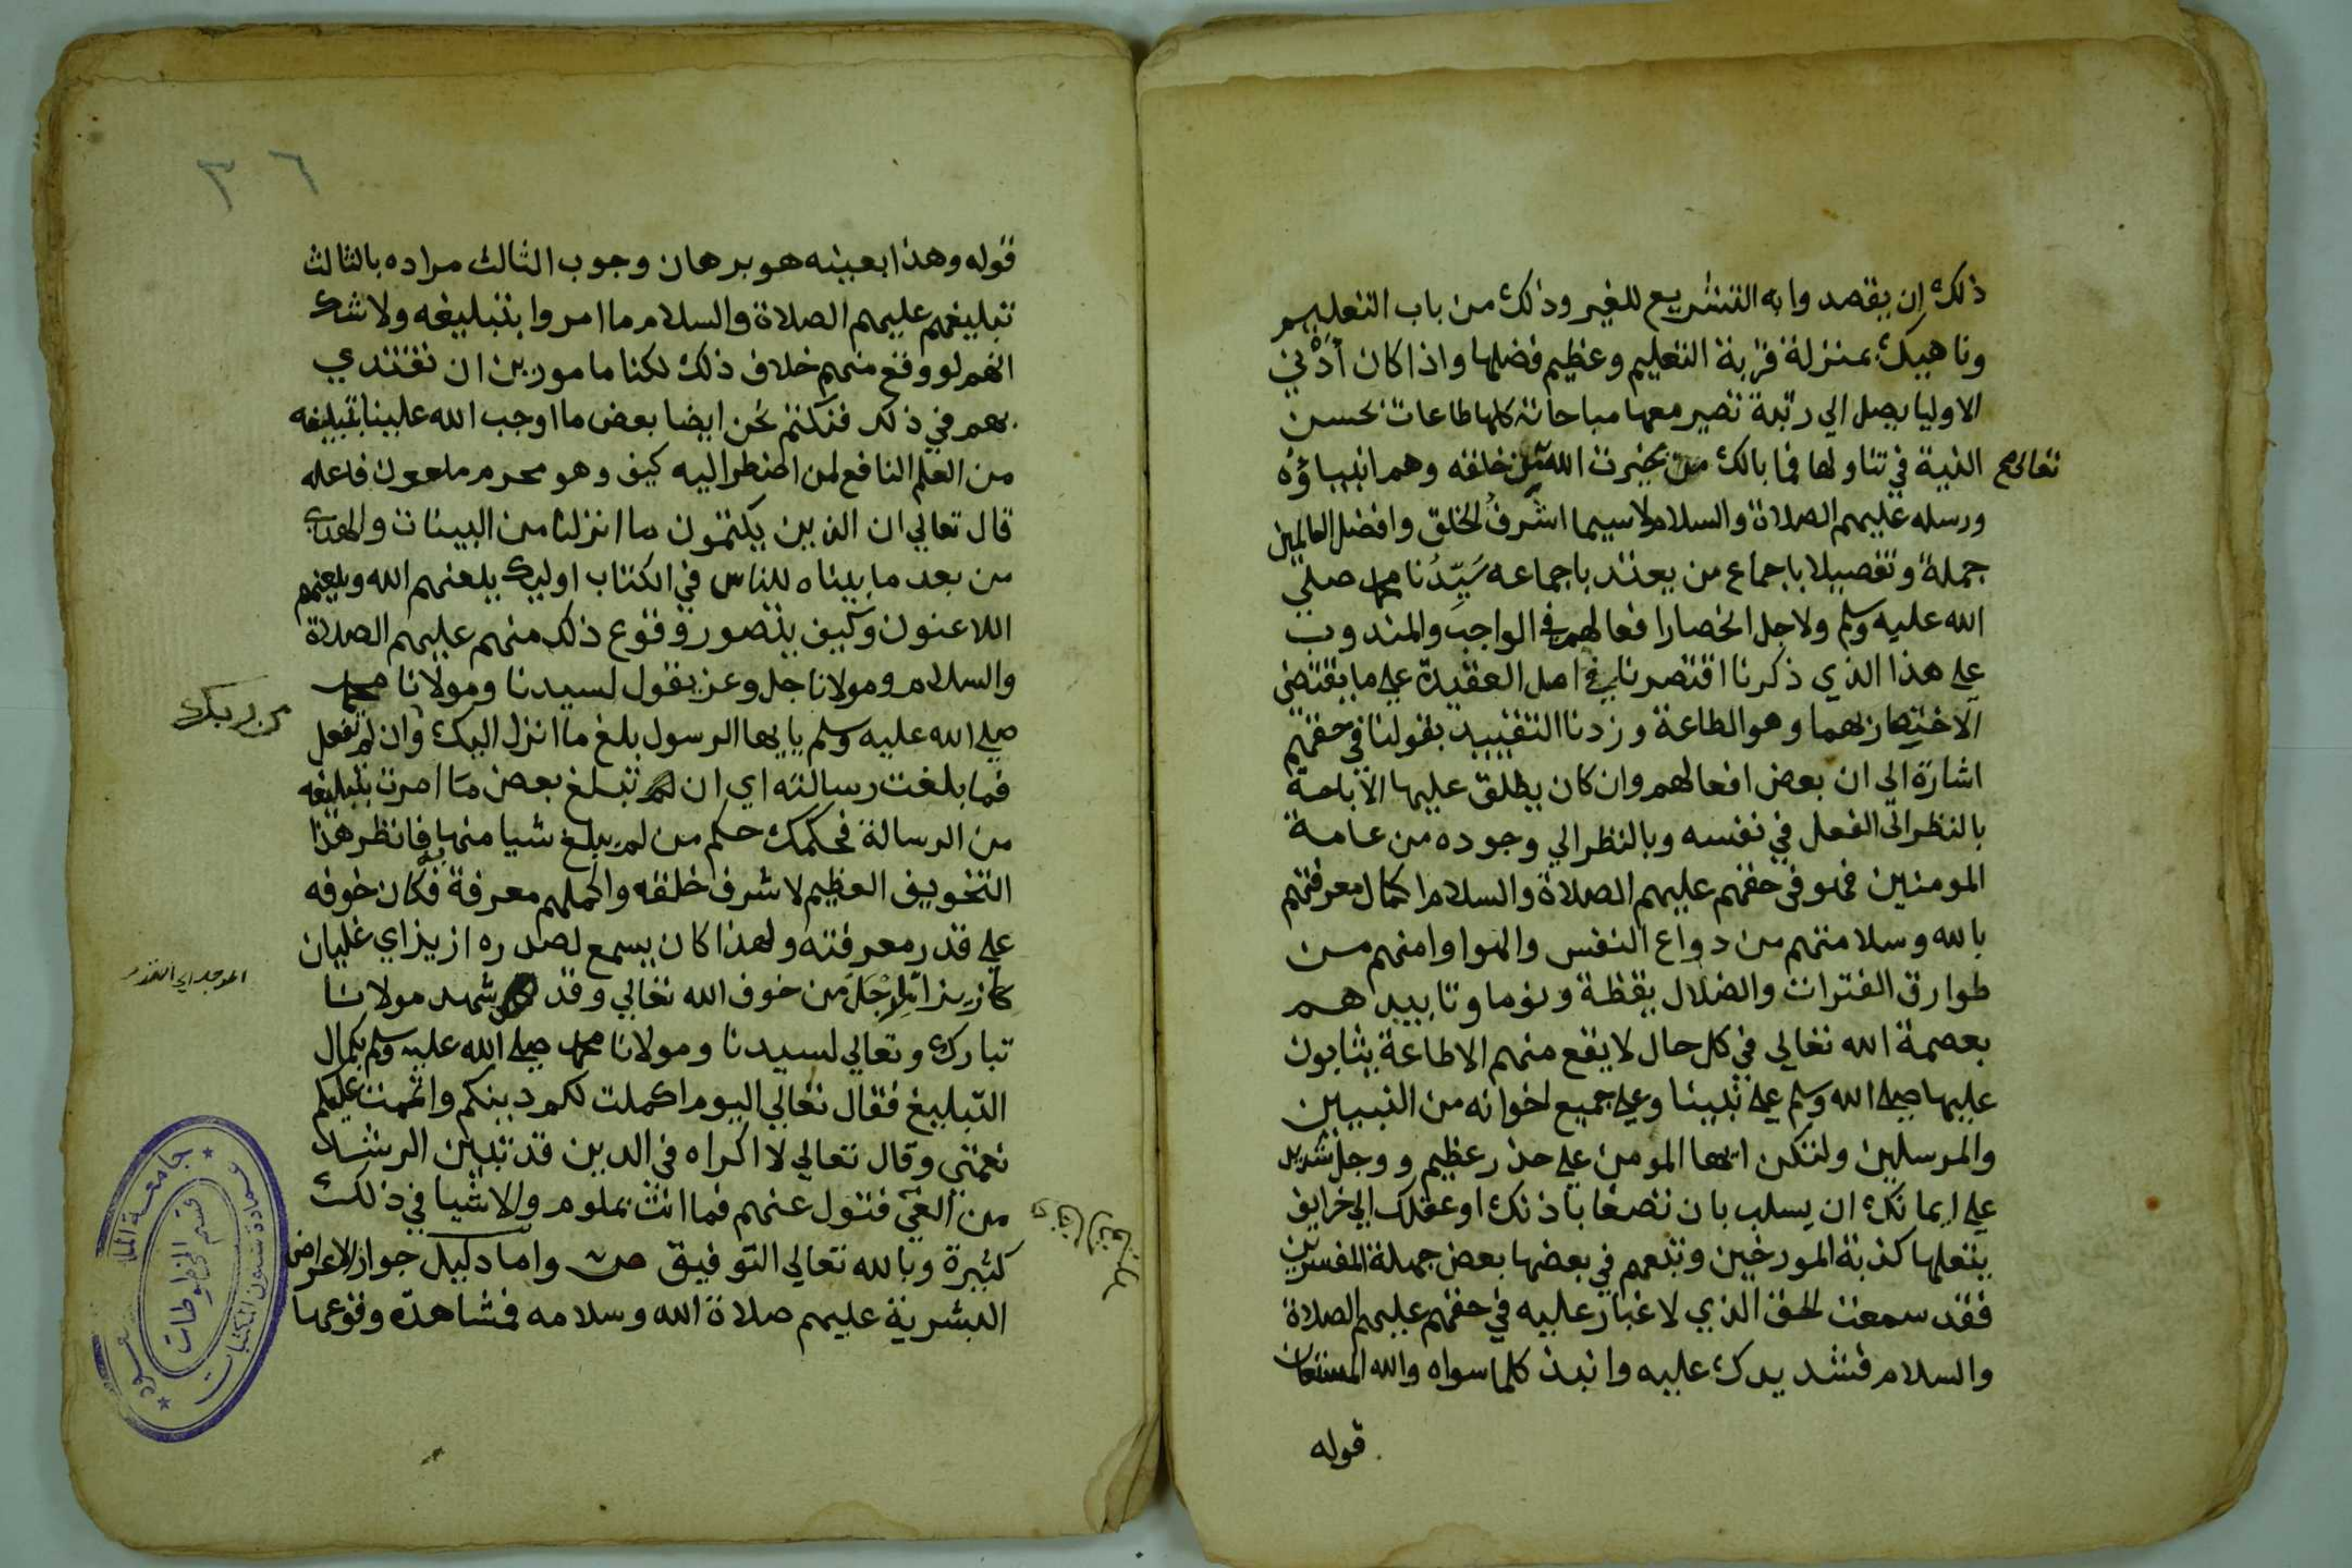 ذلك ان يقصدوا به التشريع للغير وذلك من باب التعليم
وناهيك بمنزلة قربة التعليم وعظيم فضلها واذا كان أدْني
الاوليا يصل الي رتبة تصير معها مباحاته كلها طاعات بحسن
النية في تناولها فما بالك بخيرت الله من خلقه وهم انبياؤه
تعالى صح
ورسله عليهم الصلاة والسلام لاسيما اشرفُ الخلق وافضل العالمين
جملة وتفصيلا باجماع من يعتد باجماعه سَيِّدُنا محمد صلي
الله عليه وسلم ولاجل انحصار افعالهم في الواجب والمندوب
علي هذا الذي ذكرنا اقتصرنا في اصل العقيدة علي ما يقتضي
الاختصار بهما وهو الطاعة وزدنا التقييد بقولنا في حقهم
اشارة الي ان بعض افعالهم وان كان يطلق عليها الاباحة
بالنظر الى الفعل في نفسه وبالنظر الي وجوده من عامة
المومنين فهو في حقهم عليهم الصلاة والسلام لكمال معرفتهم
بالله وسلامتهم من دواع النفس والهوا وامنهم من
طوارق الفترات والضلال يقظة ونوما وتاييدهم
بعصمة الله تعالي في كل حال لا يقع منهم الا طاعة يثابون
عليها صلى الله وسلم على نبينا وعلى جميع اخوانه من النبيين
والمرسلين ولتكن ايها المومن علي حذر عظيم ووجل شديد
علي ايمانك ان يسلب بان تصغا باذنك او عقلك الي خرايف
ينقلها كذبة المورخين وتبعهم في بعضها بعض جهلة المفسرين
فقد سمعت الحق الذي لا غبار عليه في حقهم عليهم الصلاة
والسلام فشد يدك عليه وانبذ كلما سواه والله المستعان
قوله
٣٦
قوله وهذا بعينه هو برهان وجوب الثالث مراده بالثالث
تبليغهم عليهم الصلاة والسلام ما امروا بتبليغه ولا شك
انهم لو وقع منهم خلاف ذلك لكنا مامورين ان نقتدي
بهم في ذلك فنكتم نحن ايضا بعض ما اوجب الله علينا تبليغه
من العلم النافع لمن اضطر اليه كيف وهو محرم ملعون فاعله
قال تعالي ان الذين يكتمون ما انزلنا من البينات والهدي
من بعد ما بيناه للناس في الكتاب اوليك يلعنهم الله ويلعنهم
اللاعنون وكيف يتصور وقوع ذلك منهم عليهم الصلاة
والسلام ومولانا جل وعز يقول لسيدنا ومولانا محمد
صلي الله عليه وسلم يايها الرسول بلغ ما انزل اليك وان لم تفعل
من ربك
فما بلغت رسالته اي ان لم تبلغ بعض ما امرت بتبليغه
من الرسالة فحكمك حكم من لم يبلغ شيا منها فانظر هذا
التخويف العظيم لاشرف خلقه واكملهم معرفة فكان خوفه
علي قدر معرفته ولهذا كان يسمع لصدره ازيز اي غليان
كازيز المِرْجَل من خوف الله تعالي وقد شهد مولانا
المرجل اي القدر
تبارك وتعالي لسيدنا ومولانا محمد صلى الله عليه وسلم بكمال
التبليغ فقال تعالي اليوم اكملت لكم دينكم واتممت عليكم
نعمتي وقال تعالي لا اكراه في الدين قد تبين الرشد
من الغي فتول عنهم فما انت بملوم والاشيا في ذلك
كثيرة وبالله تعالي التوفيق ص واما دليل جواز الاعراض
البشرية عليهم صلاة الله وسلامه فمشاهدة وقوعها
قسم المخطوطات